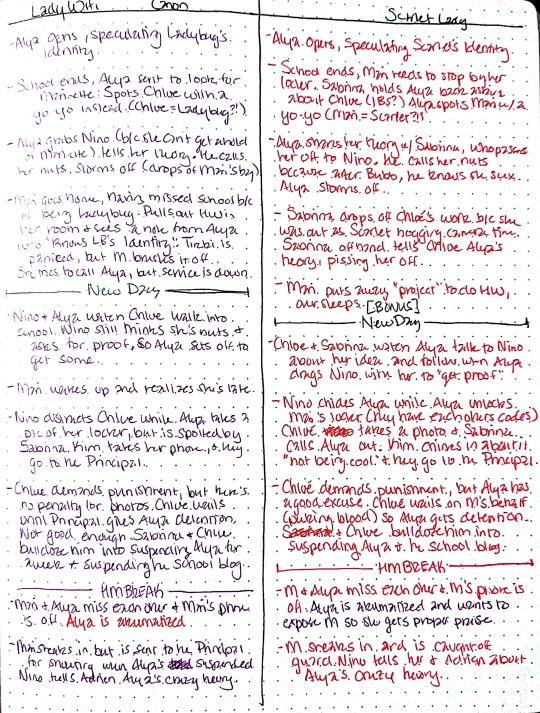 LadyWifi Canon
- Alya opens, speculating Ladybug's
identity.
- School ends, Alya sent to look for
Marinette. Spots Chloe with a
yo yo instead. (Chloe = Ladybug?!)
- Alya grabs Nino (b/c she can't get ahold
of Marinette). tells her theory. He calls
her nuts, Storms off (drops off Mari's bag)
- Mari goes home, having missed school b/c
of being Ladybug. Pulls out HW in
her room & sees a note from Alya
"Knows LB's Identity". Tikki is
panicked, but M. brushes it off.
She tries to call Alya, but service is down.
New Day
- Nino & Alya watch Chloe walk into
school. Nino still thinks she's nuts &
asks for proof, so Alya sets off to
get some.
- Mari wakes up and realizes she's late.
- Nino distracts Chloe while Alya takes a
pic of her locker, but is spotted by
Sabrina. Kim takes her phone, & they
go to the Principal.
- Chloe demands punishment, but there's
no penalty for photos. Chloe wails
until Principal gives Alya detention.
Not good enough. Sabrina & Chloe
bulldoze him into suspending Alya for
a week & suspending the school blog.
HM BREAK
- Mari & Alya miss each other & Mari's phone
is off. Alya is akumatized.
- Mari sneaks in, but is sent to the Principal
for shouting when Alya's suspended
Nino tells Adrien Alya's crazy theory.
Scarlet Lady
- Alya opens, Speculating Scarlet's Identity.
- School ends, Mari needs to stop by her
locker. Sabrina holds Alya back
about Chloe Alya spots Mari w/ a
yo-yo (Mari = Scarlet?!)
- Alya shares her theory w/ Sabrina, who passes
her off to Nino. He calls her nuts
because after Bubbo, he knows she sux.
Alya Storms off.
- Sabrina drops off Chloé's work b/c she
was out as Scarlet hogging camera time.
Sabrina offhand tells Chloe Alya's
theory, pissing her off.
- Mari puts away "project" to do HW,
our sleeps. [BONUS]
New Day
- Chloe & Sabrina watch Alya talk to Nino
about her idea and follow when Alya
drags Nino with her to "get proof"
- Nino chides Alya while Alya unlocks
Mari's locker (they have each others codes)
Chloe takes a photo & Sabrina
calls Alya out. Kim chimes in about it
"not being cool" & they go to the Principal.
- Chloé demands punishment, but Alya has
a good excuse. Chloe wails on M's behalf
(puking blood) so Alya gets detention.
& Chloe bulldoze him into
suspending Alya & the school blog.
HM BREAK
- M & Alya miss each other & M's phone is
off. Alya is akumatized and wants to
expose M so she gets proper praise.
- M sneaks in and is caught off
guard. Nino tells her & Adrien about
Alya's crazy theory.